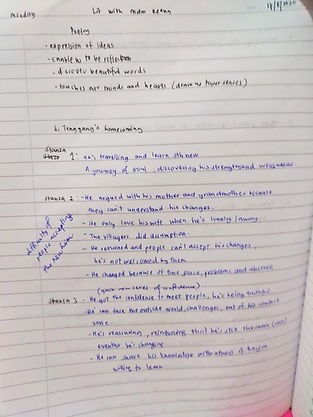 monday
Lit with mdm
Poetry
- expression of ideas
- enable us to be reflective
- discover beautiful words
- touches our minds and hearts (draw us to our senses)
Si Tenggang's homecoming
stanza 1: - He's travelling and learn sth new
A journey of soul, discovering his strength and weaknesses
stanza 2: - He argued with his mother and grandmother because
they can't understand his changes.
- He only love his wife when he's lonely / away
difficulty of
people accepting
the new him
- The villagers did assumption
- He returned and people can't accept his changes,
he's not welcomed by them
- He changed because of time, place, problems and absence
(gain new sense of confidence)
stanza 3: - He got the confidence to meet people, he's being truthful.
- He can face the outside world, challenges, out of his comfort
zone
- He's reassuring, reinforcing that he's still the same (root)
eventho he's changing
- He can share his knowledge with others if they're
willing to learn.